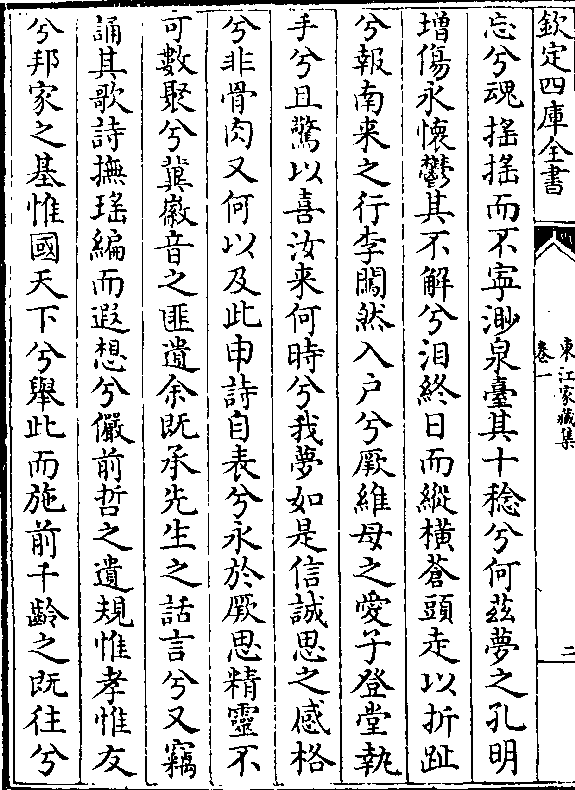 欽定四庫全書
東江家藏集
卷一
二
忘兮魂揺揺而不寜渺泉臺其十稔兮何兹夢之孔明
增傷永懷鬱其不解兮泪終日而縱横蒼頭走以折趾
兮報南来之行李闖然入户兮厥維母之愛子登堂執
手兮且驚以喜汝来何時兮我夢如是信誠思之感格
兮非骨肉又何以及此申詩自表兮永於厥思精靈不
可數聚兮冀徽音之匪遺余既承先生之話言兮又竊
誦其歌詩撫瑶編而遐想兮儼前哲之遺規惟孝惟友
兮邦家之基惟國天下兮舉此而施前千齡之既往兮